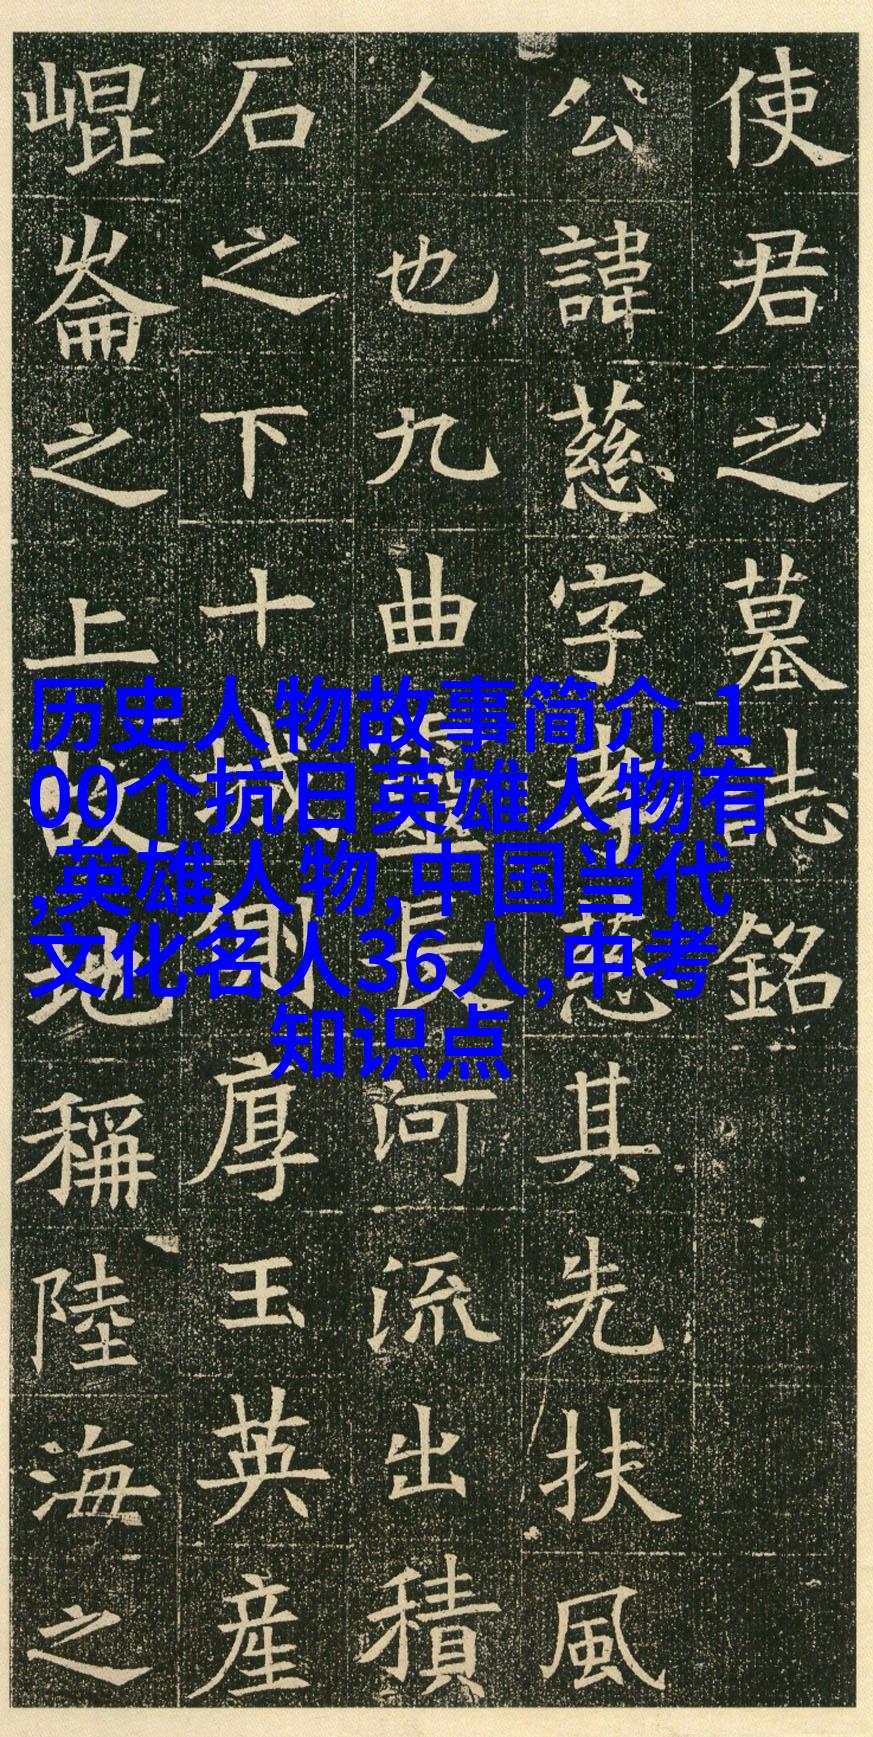 使君之墓誌銘
公諱慈字孝慈其先扶風
人也九曲靈長河流出積
石之下十城側厚玉英産
崐崙之上故地稱陸海之
历史人物故事简介,1
00个抗日英雄人物有
,英雄人物,中国当代
文化名人36人,中考
知识点